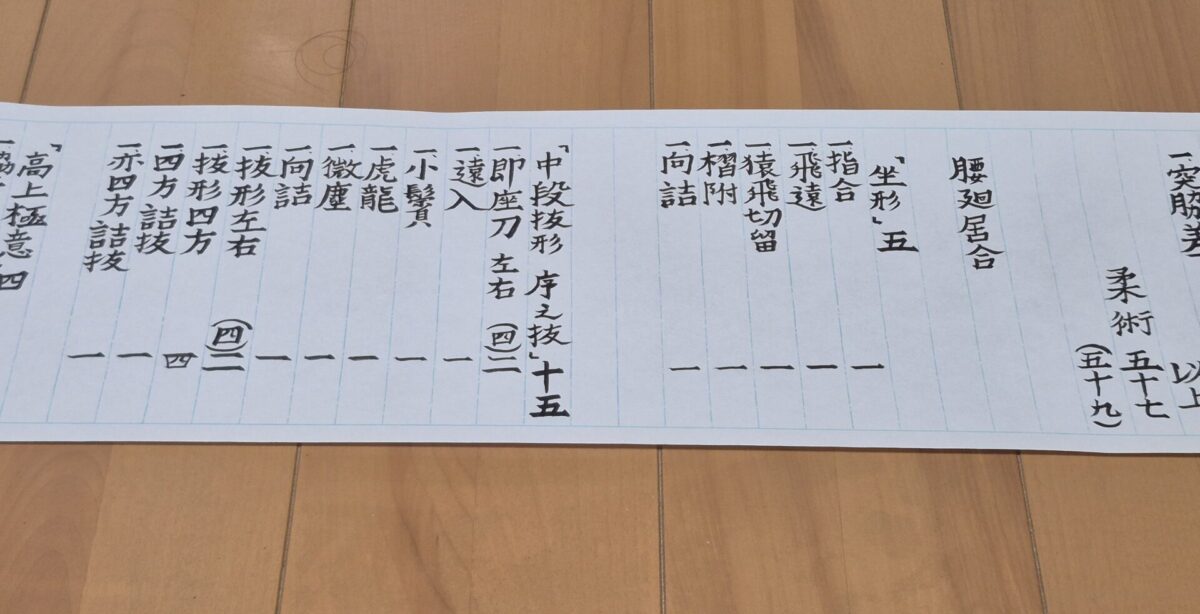 一、突脇差 以上
柔術 五十七
(五十九)
腰廻居合
「坐形」五
一、指合 一
一、飛遠 一
一、猿飛切留 一
一、摺附 一
一、向詰 一
「中段抜形 序之抜」十五
一、即座刀 左右 (四)二
一、遠入 一
一、小鬢 一
一、虎龍 一
一、微塵 一
一、向詰 一
一、抜形左右 (四)二
一、抜形四方 四
一、四方詰抜 一
一、亦四方詰抜 一
「高上極意 四